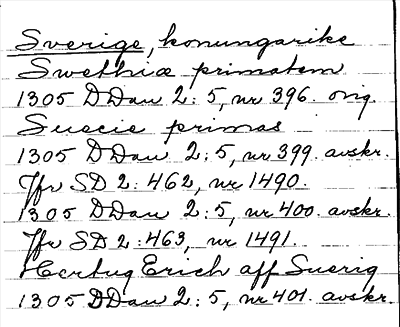 Sverige, konungarike
Swethiæ primatem
1305 DDan 2:5, nr 396. orig.
Suecie primas
1305 DDan 2:5, nr 399. avskr.
Jfr SD 2:462, nr 1490.
1305 DDan 2:5, nr 400. avskr.
Jfr SD 2:463, nr 1491.
Hertug Erich aff Suerig
1305 DDan 2:5, nr 401. avskr.